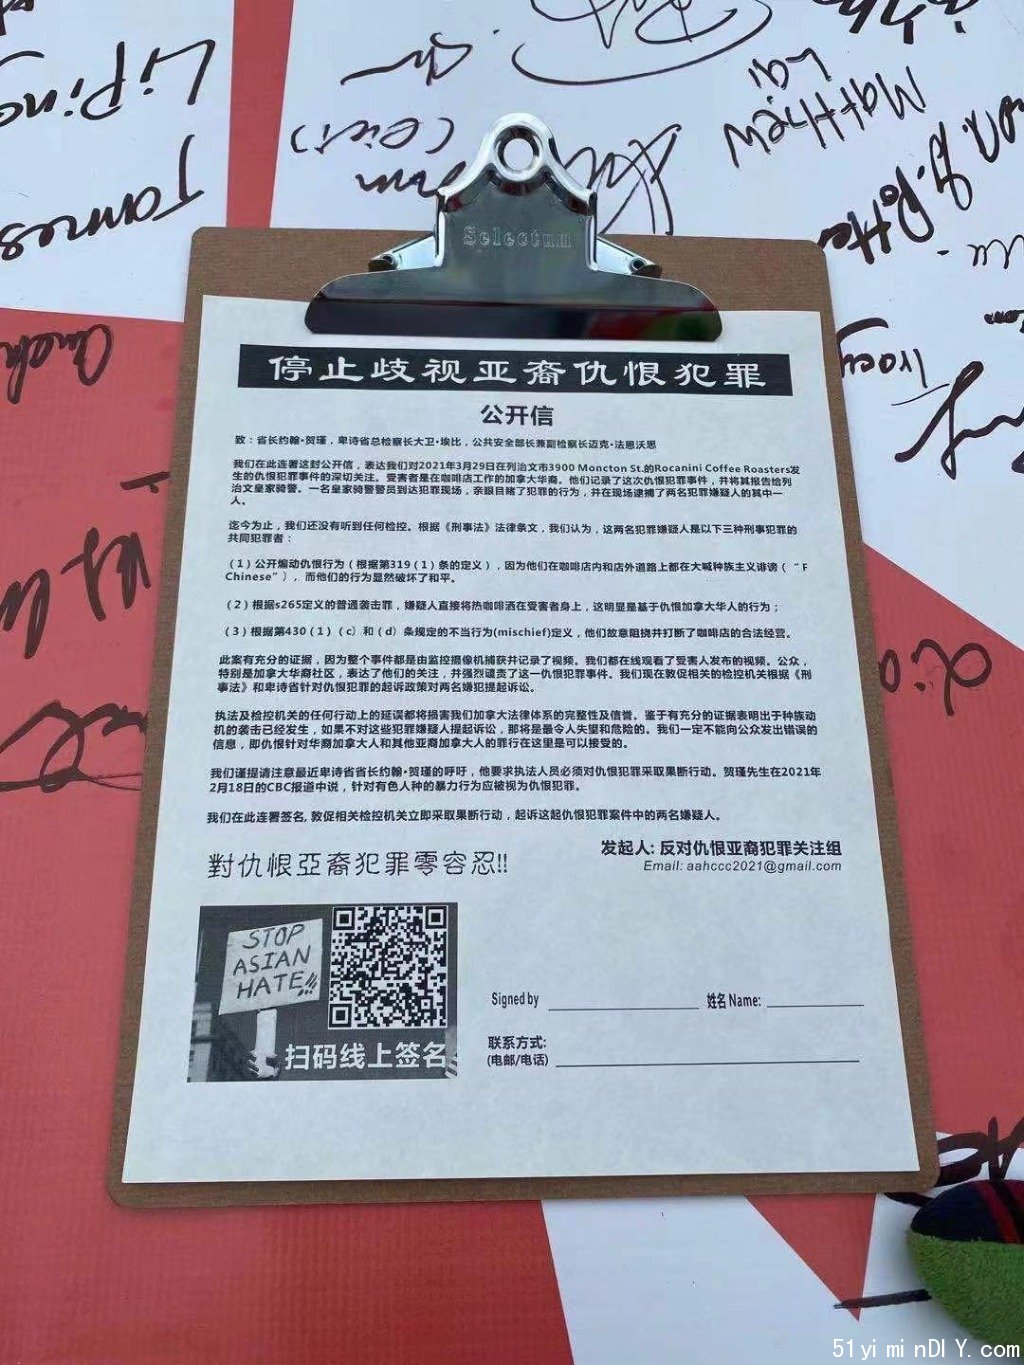 LiPing
James
Matthew
Lai
Selectum
停止歧视亚裔仇恨犯罪
公开信
致：省长约翰·贺瑾，卑诗省总检察长大卫·埃比，公共安全部长兼副检察长迈克·法恩沃思
我们在此连署这封公开信，表达我们对2021年3月29日在列治文市3900 Moncton St.的Rocanini Coffee Roasters发
生的仇恨犯罪事件的深切关注。受害者是在咖啡店工作的加拿大华裔。他们记录了这次仇恨犯罪事件，并将其报告给列
治文皇家骑警。一名皇家骑警警员到达犯罪现场，亲眼目睹了犯罪的行为，并在现场逮捕了两名犯罪嫌疑人的其中一
人。
迄今为止，我们还没有听到任何检控。根据《刑事法》法律条文，我们认为，这两名犯罪嫌疑人是以下三种刑事犯罪的
共同犯罪者：
（1）公开煽动仇恨行为（根据第319（1）条的定义），因为他们在咖啡店内和店外道路上都在大喊种族主义诽谤（“F
Chinese”），而他们的行为显然破坏了和平。
（2）根据s265定义的普通袭击罪，嫌疑人直接将热咖啡洒在受害者身上，这明显是基于仇恨加拿大华人的行为；
（3）根据第430（1）（c）和（d）条规定的不当行为(mischief)定义，他们故意阻挠并打断了咖啡店的合法经营。
此案有充分的证据，因为整个事件都是由监控摄像机捕获并记录了视频。我们都在线观看了受害人发布的视频。公众，
特别是加拿大华裔社区，表达了他们的关注，并强烈谴责了这一仇恨犯罪事件。我们现在敦促相关的检控机关根据《刑
事法》和卑诗省针对仇恨犯罪的起诉政策对两名嫌犯提起诉讼。
执法及检控机关的任何行动上的延误都将损害我们加拿大法律体系的完整性及信誉。鉴于有充分的证据表明出于种族动
机的袭击已经发生，如果不对这些犯罪嫌疑人提起诉讼，那将是最令人失望和危险的。我们一定不能向公众发出错误的
信息，即仇恨针对华裔加拿大人和其他亚裔加拿大人的罪行在这里是可以接受的。
我们谨提请注意最近卑诗省省长约翰·贺瑾的呼吁，他要求执法人员必须对仇恨犯罪采取果断行动。贺瑾先生在2021年
2月18日的CBC报道中说，针对有色人种的暴力行为应被视为仇恨犯罪。
我们在此连署签名，敦促相关检控机关立即采取果断行动，起诉这起仇恨犯罪案件中的两名嫌疑人。
對仇恨亞裔犯罪零容忍!!
发起人: 反对仇恨亚裔犯罪关注组
Email: aahccc2021@gmail.com
STOP
ASIAN
HATE!!!
扫码线上签名
Signed by
姓名 Name:
联系方式:
(电邮/电话)
51yiminDIY.com